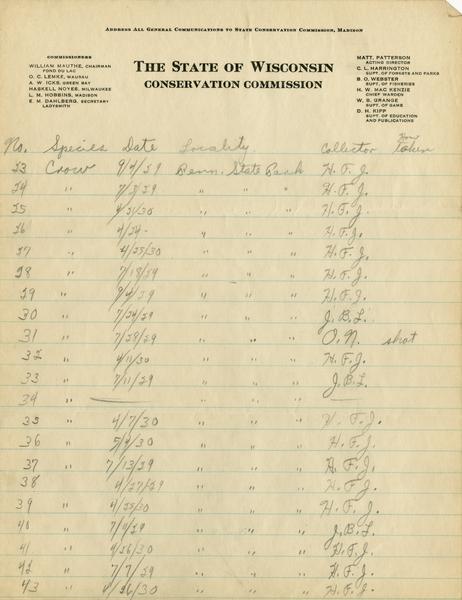 ADDRESS ALL GENERAL COMMUNICATIONS TO STATE CONSERVATION COMMISSION, MADISON
COMMISSIONERS
WILLIAM MAUTHE, CHAIRMAN
FOND DU LAC
O. C. LEMKE, WAUSAU
A. W. ICKS, GREEN BAY
HASKELL NOYES, MILWAUKEE
L. M. HOBBINS, MADISON
E. M. DAHLBERG, SECRETARY
LADYSMITH
THE STATE OF WISCONSIN
CONSERVATION COMMISSION
MATT. PATTERSON
ACTING DIRECTOR
C. L. HARRINGTON
SUPT. OF FORESTS AND PARKS
B. O. WEBSTER
SUPT. OF FISHERIES
H. W. MAC KENZIE
CHIEF WARDEN
W. B. GRANGE
SUPT. OF GAME
D. H. KIPP
SUPT. OF EDUCATION
AND PUBLICATIONS
No. Species Date Locality Collector How taken
23 Crow 9/4/29 Penn. State Park H. F. J.
24 " 7/3/29 " " " H. F. J.
25 " 4/21/30 " " " H. F. J.
26 " 4/24- " " " H. F. J.
27 " 4/25/30 " " " H. F. J.
28 " 7/18/29 " " " H. F. J.
29 " 9/4/29 " " " H. F. J.
30 " 7/24/29 " " " J. B. L.
31 " 7/28/29 " " " O. N. shot
32 " 4/11/30 " " " H. F. J.
33 " 7/11/29 " " " J. B. L.
34 " — " " " —
35 " 4/7/30 " " " H. F. J.
36 " 5/4/30 " " " H. F. J.
37 " 7/13/29 " " " H. F. J.
38 " 4/27/29 " " " H. F. J.
39 " 4/25/30 " " " H. F. J.
40 " 7/4/29 " " " J. B. L.
41 " 4/26/30 " " " H. F. J.
42 " 7/7/29 " " " H. F. J.
43 " 4/26/30 " " " H. F. J.